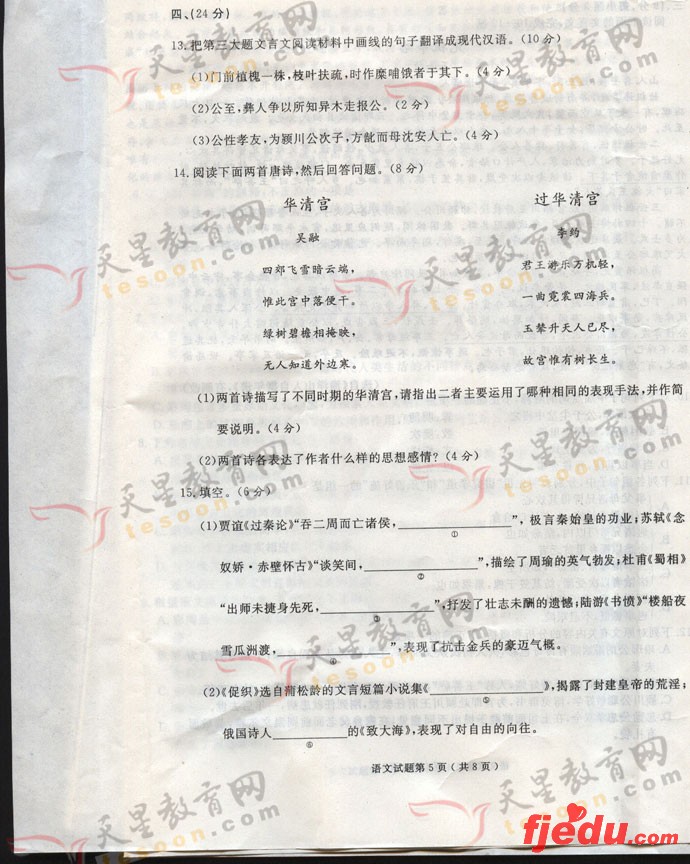 四、(24分)
13.把第三大题文言文阅读材料中画线的句子翻译成现代汉语。(10分)
(1)门前植槐一株,枝叶扶疏,时作糜哺饿者于其下。(4分)
(2)公至,彝人争以所知异木走报公。(2分)
(3)公性孝友,为颍川公次子,方龀而母沈安人亡。(4分)
14.阅读下面两首唐诗,然后回答问题。(8分)
华清宫
吴融
四郊飞雪暗云端,
惟此宫中落便干。
绿树碧檐相掩映,
无人知道外边寒。
过华清宫
李约
君王游乐万机轻,
一曲霓裳四海兵。
玉辇升天人已尽,
故宫惟有树长生。
(1)两首诗描写了不同时期的华清宫,请指出二者主要运用了哪种相同的表现手法,并作简
要说明。(4分)
(2)两首诗各表达了作者什么样的思想感情?(4分)
15.填空。(6分)
(1)贾谊《过秦论》“吞二周而亡诸侯,____①____”,极言秦始皇的功业;苏轼《念
奴娇·赤壁怀古》“谈笑间,____②____”,描绘了周瑜的英气勃发;杜甫《蜀相》
“出师未捷身先死,____③____”,抒发了壮志未酬的遗憾;陆游《书愤》“楼船夜
雪瓜洲渡,____④____”,表现了抗击金兵的豪迈气概。
(2)《促织》选自蒲松龄的文言短篇小说集《____⑤____》,揭露了封建皇帝的荒淫;
俄国诗人____⑥____的《致大海》,表现了对自由的向往。
语文试题第5页(共8页)
天星教育网
tesoon.com
fjedu.com